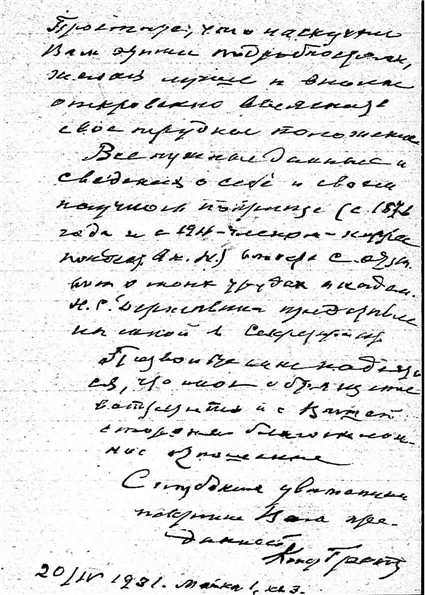 Простите, что наскучил
Вам этими подробностями,
желая лучше и вполне
откровенно выяснить
свое трудное положение
Все нужные данные и
сведения о себе и своем
научном поприще (с 1876
года и с член-корре
Ак. Н.)
трудах академ.
Н. С. Державина
мной в Секретариат
Позвольте мне надеять
ся, что мое обращение
встретит и с Вашей
стороны благосклон-
ное отношение
С глубоким уважением
Вам пре-
данность
20/IV 1931. Мойка 1, кв 3.